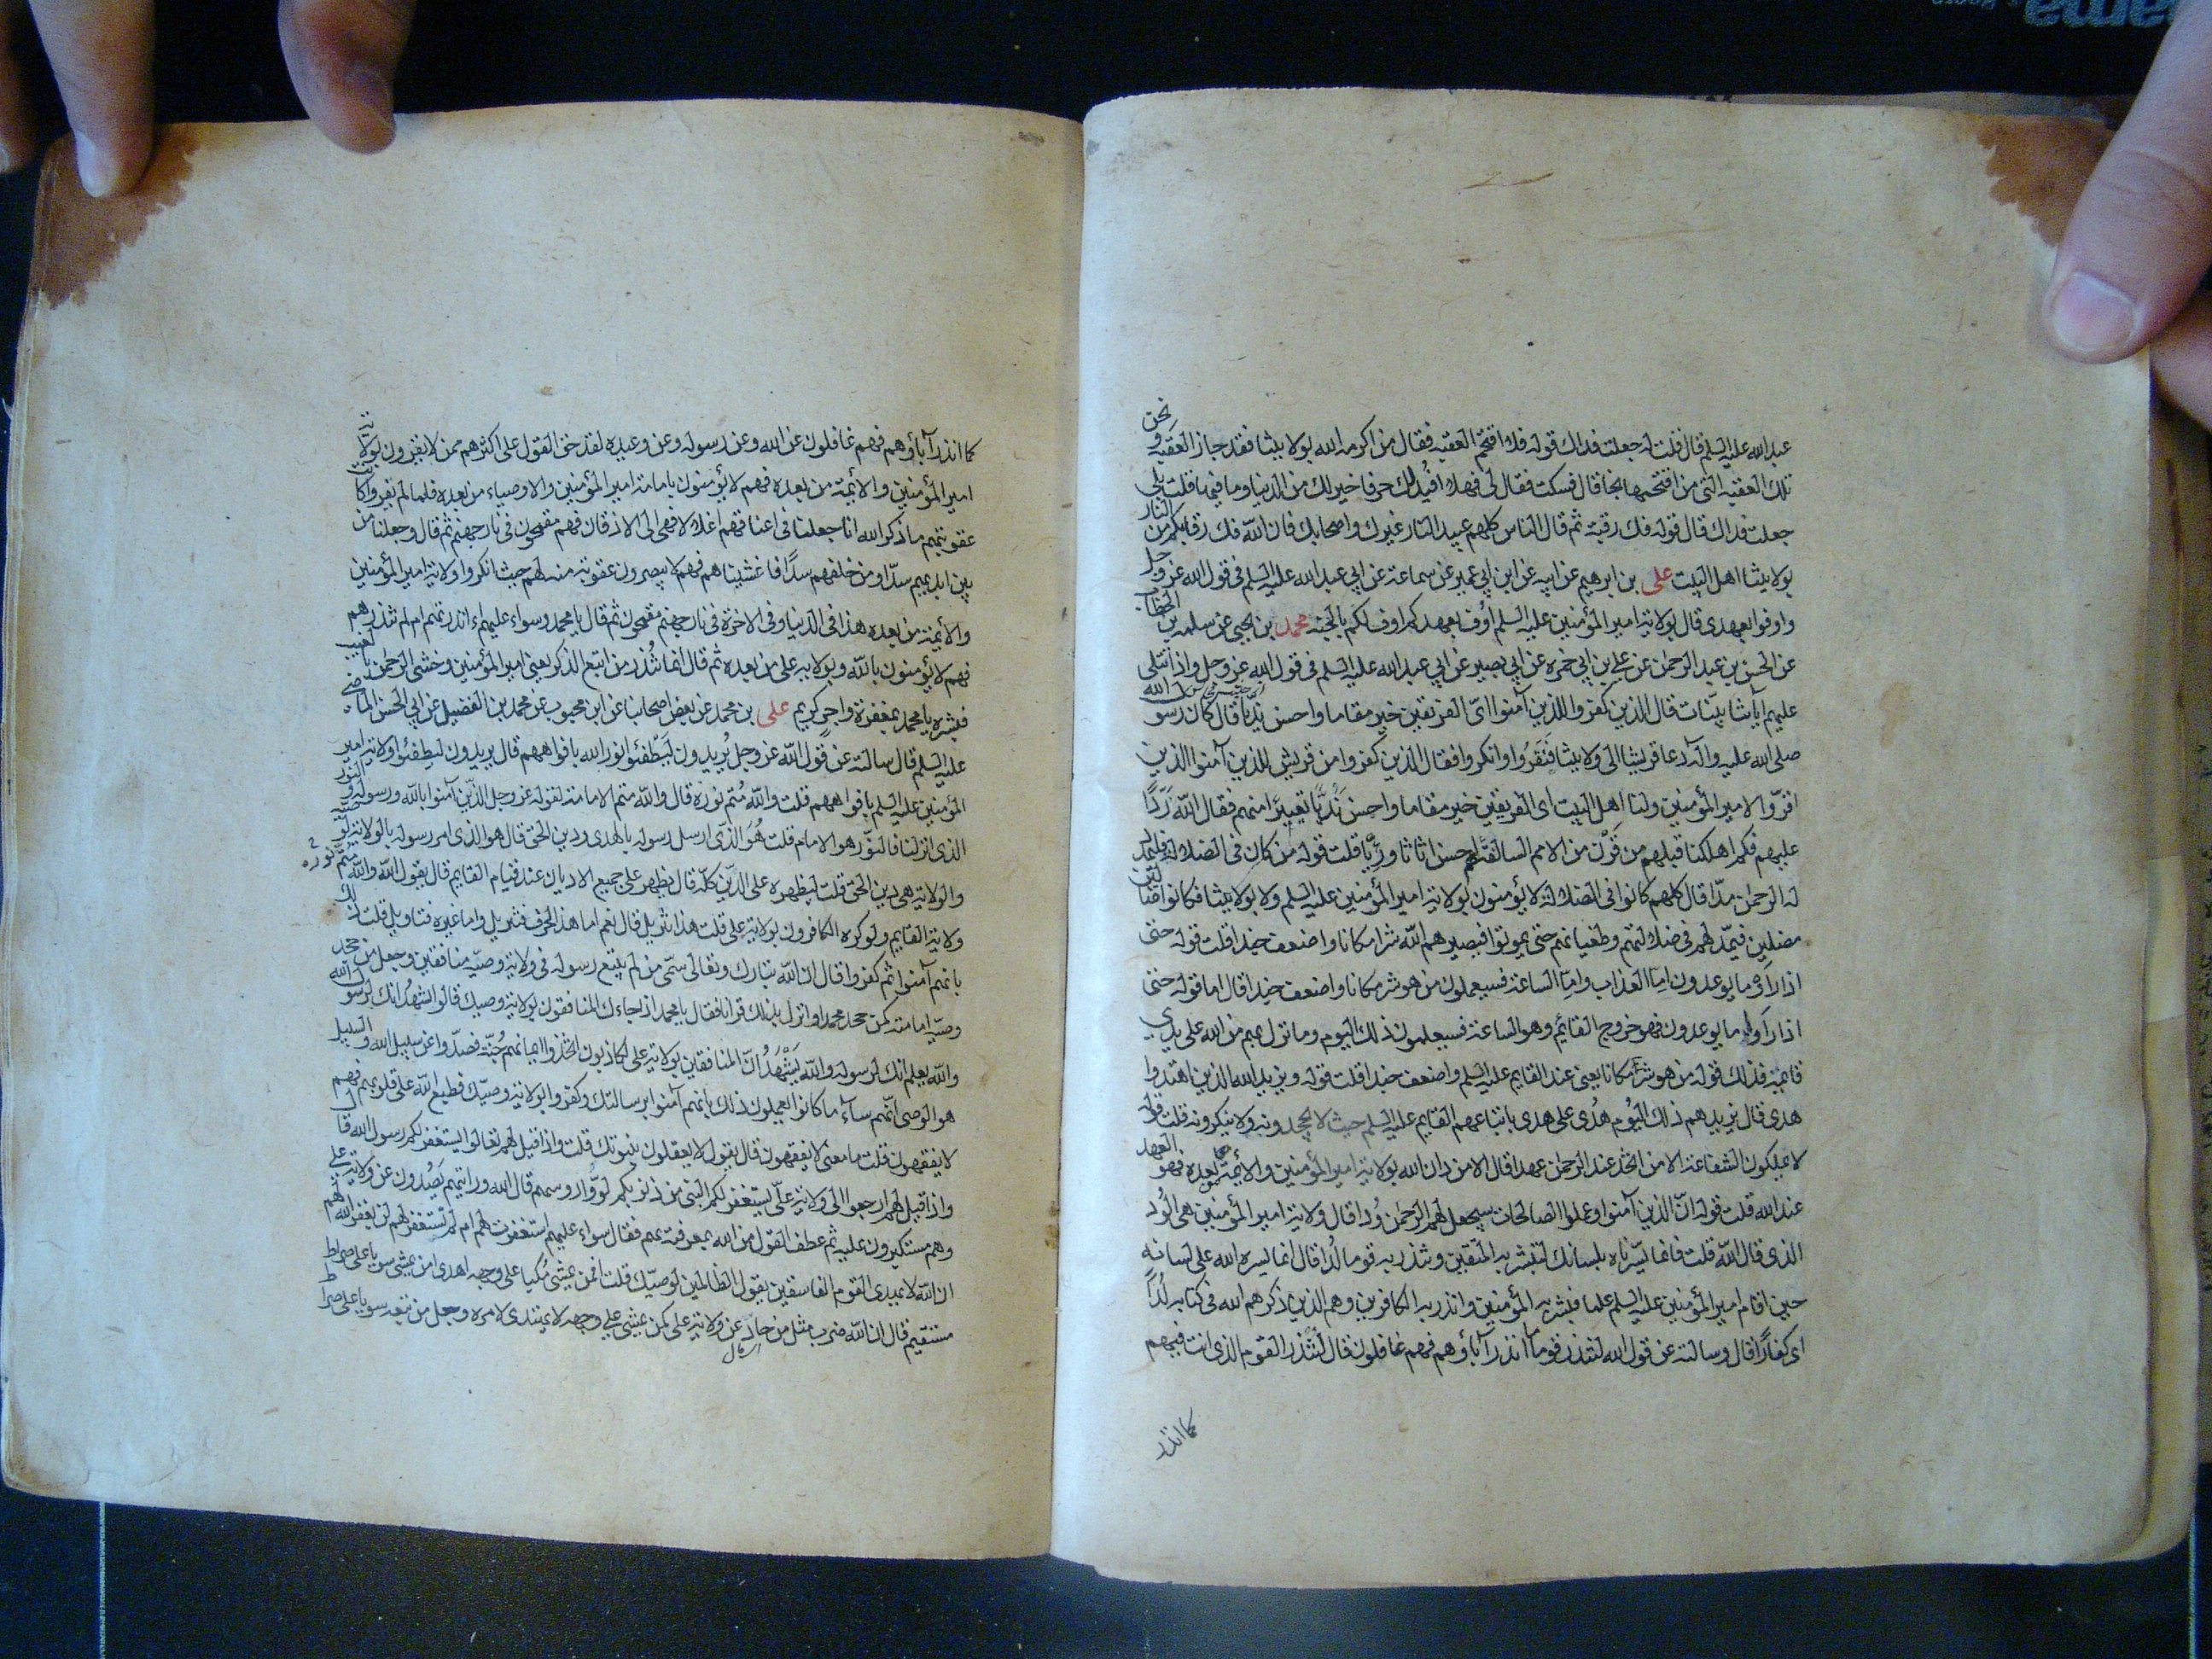 عبد الله عليه السلم قال قلت له جعلت فداك قوله فلا اقتحم العقبه فقال من اكرمه الله بولايتنا فقد جاز العقبه و نحن
تلك العقبه التى من اقتحمها نجا قال فسكت فقال لى فهلا افيدك حرفا خير لك من الدنيا وما فيها قلت بلى
جعلت فداك قال قوله فك رقبة ثم قال الناس كلهم عبيد النار غيرك واصحابك فان الله فك رقابكم من النار
بولايتنا اهل البيت على بن ابرهيم عن ابيه عن ابن ابي عمير عن سماعة عن ابي عبد الله عليه السلم فى قول الله عز وجل
واوفوا بعهدى قال بولاية امير المؤمنين عليه السلم اوف بعهدكم اوف لكم بالجنه محمد بن يحيى عن سلمه بن الخطاب
عن الحسن بن عبد الرحمن عن على بن ابي حمزه عن ابي بصير عن ابي عبد الله عليه السلم فى قول الله عز وجل واذا تتلى
عليهم اياتنا بينات قال الذين كفروا للذين آمنوا اىّ الفريقين خير مقاما واحسن نديّا قال كان رسول الله
صلى الله عليه وآله دعا قريشا الى ولايتنا فنفروا وانكروا فقال الذين كفروا من قريش للذين آمنوا الذين
اقرّوا لامير المؤمنين ولنا اهل البيت اى الفريقين خير مقاما واحسن نديّا تعييرا منهم فقال الله ردّا
عليهم فكم اهلكنا قبلهم من قرن من الامم السالفة هم احسن اثاثا ورِيّا قلت قوله من كان فى الضلالة فليمدد
له الرحمن مدّا قال كلهم كانوا فى الضلالة لا يؤمنون بولاية امير المؤمنين عليه السلم ولا بولايتنا فكانوا ضالين
مضلين فيمدّ لهم فى ضلالتهم وطغيانهم حتى يموتوا فيصيرهم الله شرا مكانا واضعف جندا قلت قوله حتى
اذا راوا ما يوعدون امّا العذاب وامّا الساعة فسيعلمون من هو شر مكانا واضعف جندا قال اما قوله حتى
اذا راوا ما يوعدون فهو خروج القائم وهو الساعة فسيعلمون ذلك اليوم وما نزل بهم من الله على يدي
قائمه فذلك قوله من هو شر مكانا يعنى عند القايم عليه السلم واضعف جندا قلت قوله ويزيد الله الذين اهتدوا
هدى قال يزيدهم ذلك اليوم هدى على هدى باتباعهم القايم عليه السلم حيث لا يجحدونه ولا ينكرونه قلت قوله
لا يملكون الشفاعة الا من اتخذ عند الرحمن عهدا قال الا من دان الله بولاية امير المؤمنين والائمة من بعده فهو العهد
عند الله قلت قوله انّ الذين آمنوا وعملوا الصالحات سيجعل لهم الرحمن ودا قال ولاية امير المؤمنين هى الود
الذى قال الله قلت فانما يسّرناه بلسانك لتبشر به المتقين وتنذر به قوما لدا قال انما يسره الله على لسانه
حين اقام امير المؤمنين عليه السلم علما فبشر به المؤمنين وانذر به الكافرين وهم الذين ذكرهم الله فى كتابه لدّا
اى كفارا قال وسالته عن قول الله لتنذر قوما ما انذر آباؤهم فهم غافلون قال لتنذر القوم الذى انت فيهم
كما انذر
كما انذر آباؤهم فهم غافلون عن الله وعن رسوله وعن وعيده لقد حق القول على اكثرهم ممن لا يقرون بولاية
امير المؤمنين والائمة من بعده فهم لا يؤمنون بامامة امير المؤمنين والاوصياء من بعده فلما لم يقروا كانت
عقوبتهم ما ذكر الله انا جعلنا فى اعناقهم اغلالا فهى الى الاذقان فهم مقمحون فى نار جهنم ثم قال وجعلنا من
بين ايديهم سدّا ومن خلفهم سدّا فاغشيناهم فهم لا يبصرون عقوبة منه لهم حيث انكروا ولاية امير المؤمنين
والائمة من بعده هذا فى الدنيا وفى الاخرة فى نار جهنم مقمحون ثم قال يا محمد وسواء عليهم ءانذرتهم ام لم تنذرهم
فهم لا يؤمنون بالله وبولاية على من بعده ثم قال انما تنذر من اتبع الذكر يعنى امير المؤمنين وخشى الرحمن بالغيب
فبشره يا محمد بمغفرة واجر كريم على بن محمد عن بعض اصحابنا عن ابن محبوب عن محمد بن الفضيل عن ابي الحسن الماضى
عليه السلم قال سالته عن قول الله عز وجل يريدون ليطفئوا نور الله بافواههم قال يريدون ليطفئوا ولاية امير
المؤمنين عليه السلم بافواههم قلت والله متم نوره قال والله متم الامامة لقوله عز وجل الذين آمنوا بالله ورسوله والنور
الذى انزلنا فالنور هو الامام قلت هو الذى ارسل رسوله بالهدى ودين الحق قال هو الذى امر رسوله بالولاية لوصيّه
والولاية هى دين الحق قلت ليظهره على الدّين كلّه قال يظهره على جميع الاديان عند قيام القايم قال يقول الله والله متمّ نوره
ولاية القايم ولو كره الكافرون بولاية على قلت هذا تنزيل قال نعم اما هذا الحرف فتنزيل واما غيره فتاويل قلت ذلك
بانهم آمنوا ثم كفروا قال ان الله تبارك وتعالى سمّى من لم يتبع رسوله فى ولاية وصيّه منافقين وجعل من جحد
وصيّه امامته كمن جحد محمدا وانزل بذلك قرانا فقال يا محمد اذا جاءك المنافقون بولاية وصيك قالوا نشهد انك لرسول الله
والله يعلم انك لرسوله والله يشهد انّ المنافقين بولاية على لكاذبون اتخذوا ايمانهم جُنّة فصدّوا عن سبيل الله والسبيل
هو الوصى انّهم سآء ما كانوا يعملون ذلك بانهم آمنوا برسالتك وكفروا بولاية وصيّك فطبع الله على قلوبهم فهم
لا يفقهون قلت ما معنى لا يفقهون قال يقول لا يعقلون بنبوتك قلت واذا قيل لهم تعالوا يستغفر لكم رسول الله قال
واذا قيل لهم ارجعوا الى ولاية علىّ يستغفر لكم النبى من ذنوبكم لوّوا رؤسهم قال الله ورايتهم يصُدون عن ولاية على
وهم مستكبرون عليه ثم عطف القول من الله بمعرفته بهم فقال سواء عليهم استغفرت لهم ام لم تستغفر لهم لن يغفر الله لهم
ان الله لا يهدى القوم الفاسقين يقول الظالمين لوصيّك قلت افمن يمشى مُكبا على وجهه اهدى امن يمشى سويا على صراط
مستقيم قال ان الله ضرب مثل من حاد عن ولاية على كمن يمشى على وجهه لا يهتدى لامره وجعل من تبعه سويا على صراط